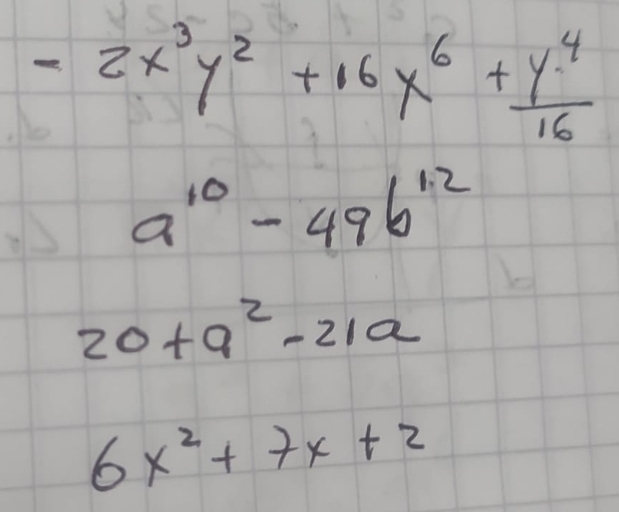 - 2x³y² + 16x⁶ + y⁴/16
a¹⁰ - 49b¹²
20 + a² - 21a
6x² + 7x + 2